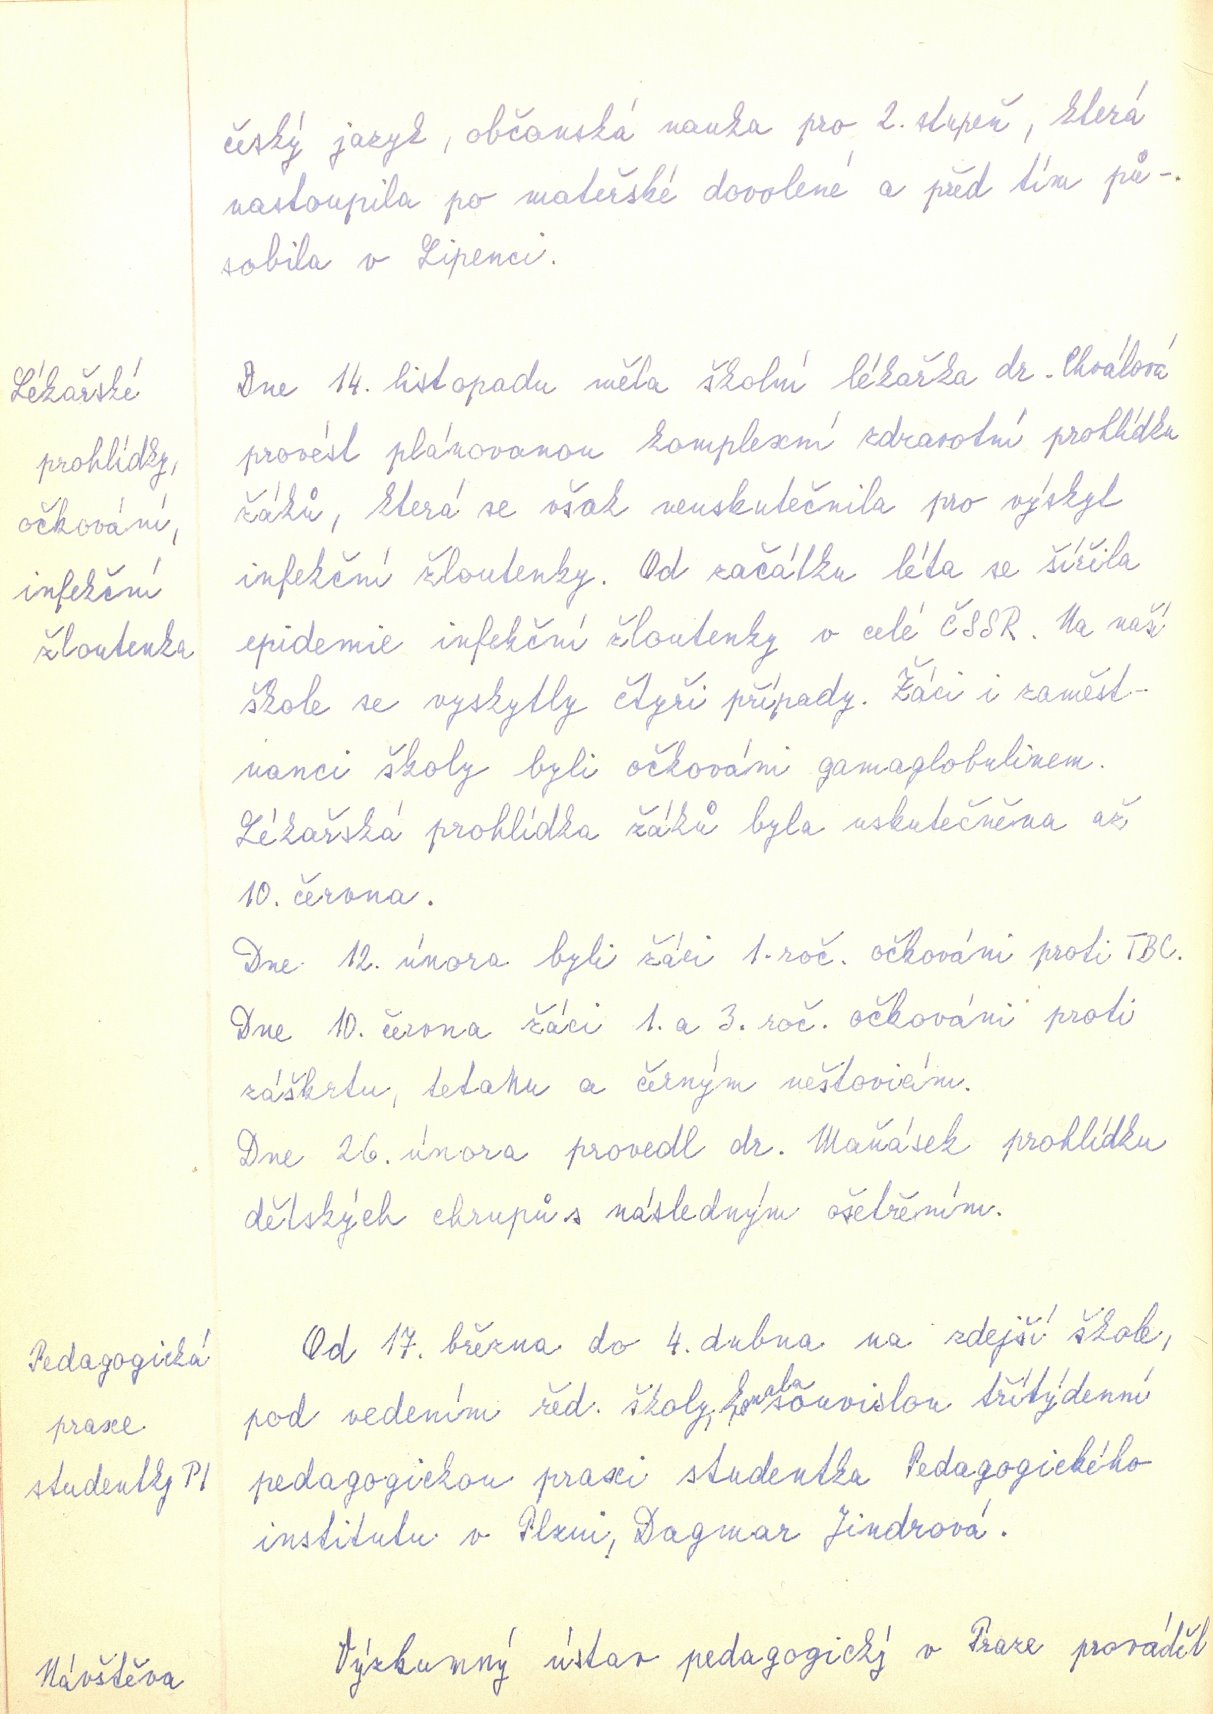 český jazyk, občanská nauka pro 2. stupeň, která
nastoupila po mateřské dovolené a před tím pů-
sobila v Lipenci.
Lékařské
prohlídky,
očkování,
infekční
žloutenka
Dne 14. listopadu měla školní lékařka dr. Chválová
provést plánovanou komplexní zdravotní prohlídku
žáků, která se však neuskutečnila pro výskyt
infekční žloutenky. Od začátku léta se šířila
epidemie infekční žloutenky v celé ČSSR. Na naší
škole se vyskytly čtyři případy. Žáci i zaměst-
nanci školy byli očkováni gamaglobulinem.
Lékařská prohlídka žáků byla uskutečněna až
10. června.
Dne 12. února byli žáci 1. roč. očkováni proti TBC.
Dne 10. června žáci 1. a 3. roč. očkováni proti
záškrtu, tetanu a černým neštovicím.
Dne 26. února provedl dr. Maňásek prohlídku
dětských chrupů s následným ošetřením.
Pedagogická
praxe
studentky PI
Od 17. března do 4. dubna na zdejší škole,
pod vedením řed. školy, konala souvislou třítýdenní
pedagogickou praxi studentka Pedagogického
institutu v Plzni, Dagmar Jindrová.
Návštěva
Výzkumný ústav pedagogický v Praze prováděl